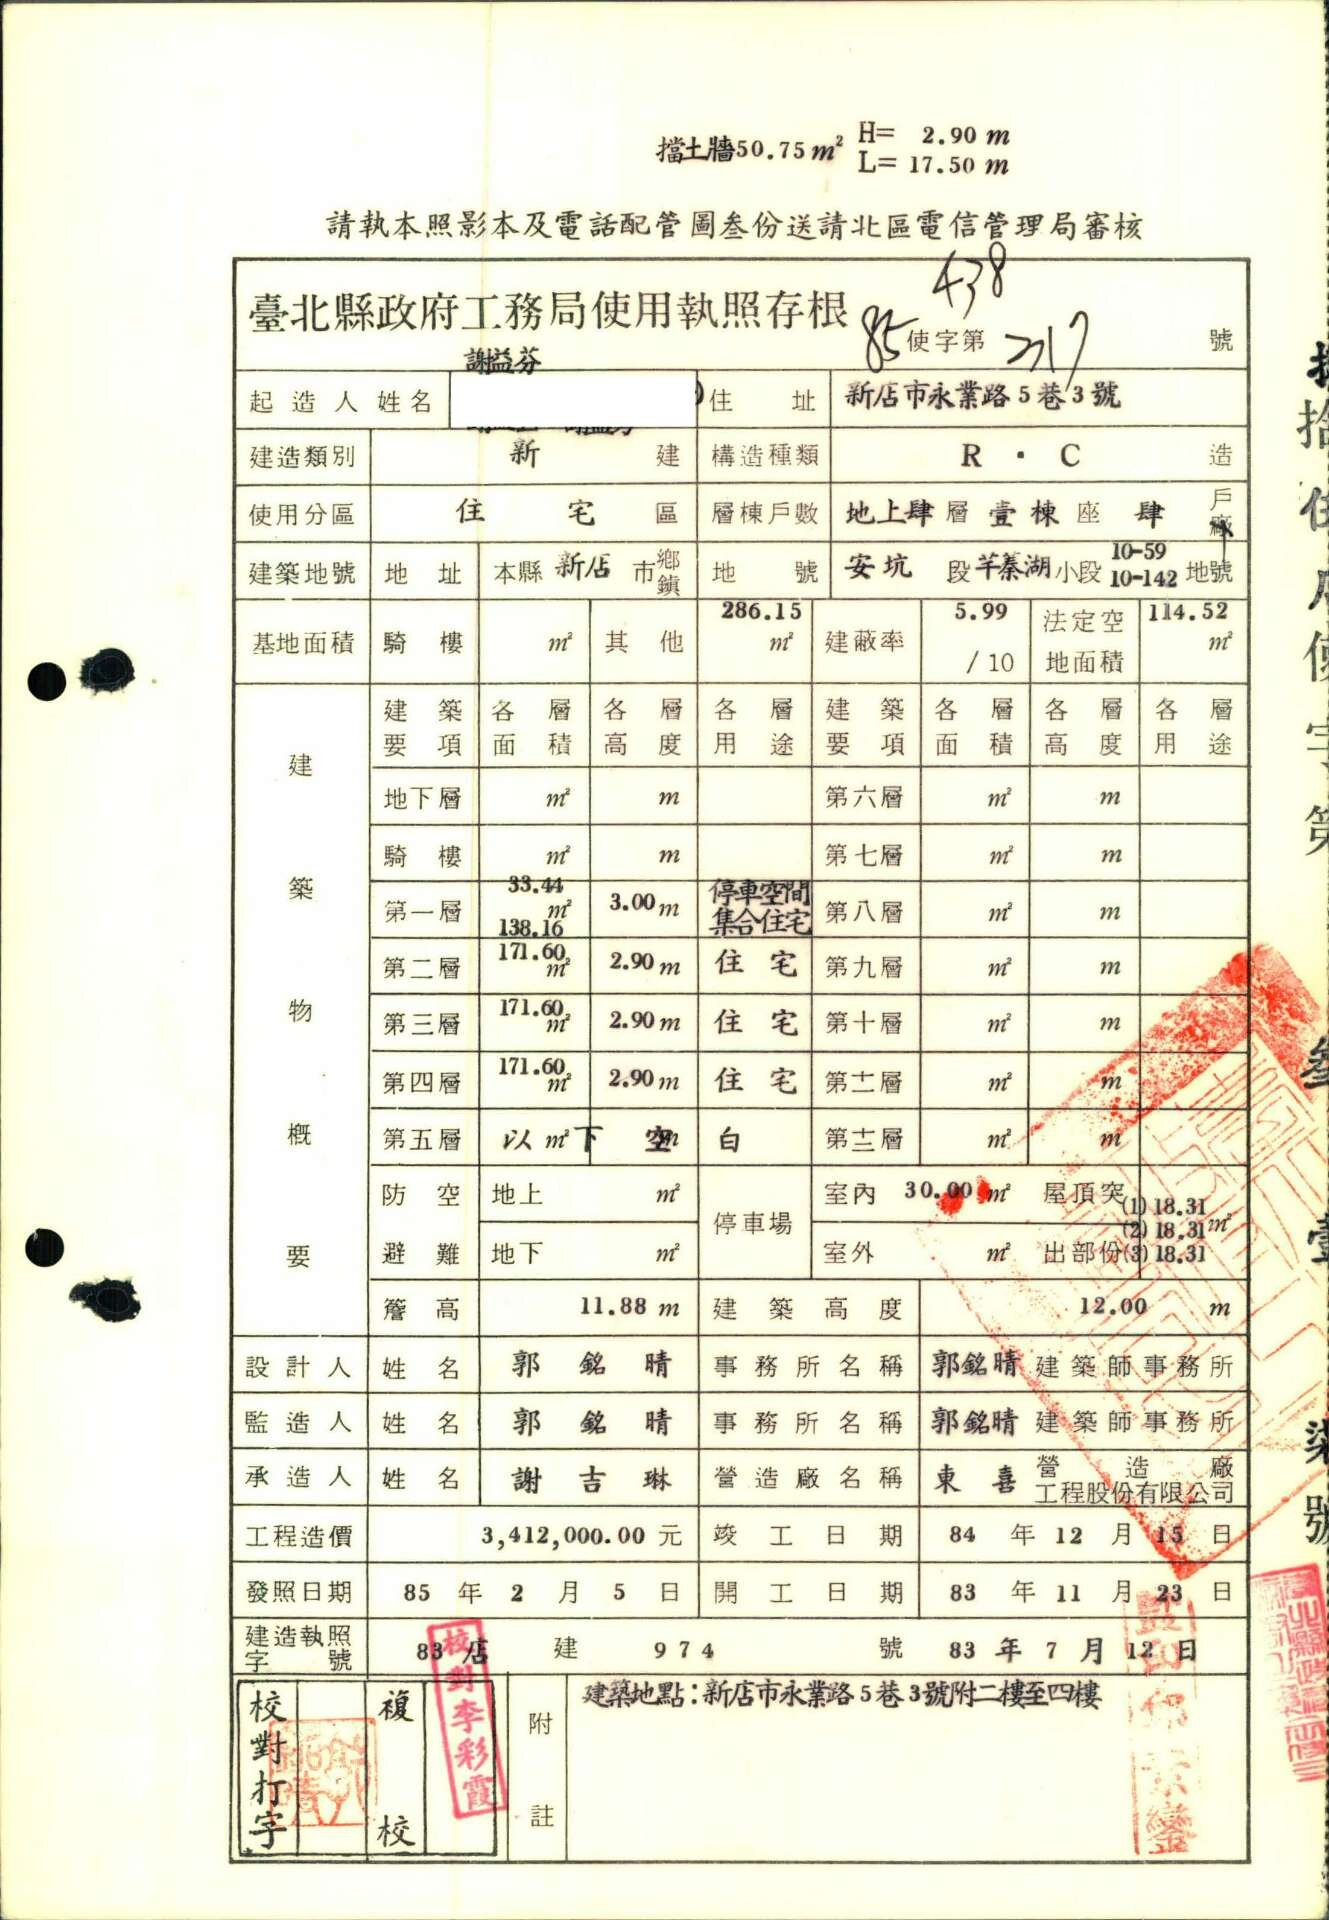 擋土牆50.75m² H= 2.90 m
L= 17.50 m
請執本照影本及電話配管圖叁份送請北區電信管理局審核
438
臺北縣政府工務局使用執照存根 85使字第 317 號
謝益芬
起造人 姓名 住址 新店市永業路5巷3號
建造類別 新 建 構造種類 R．C 造
使用分區 住宅 區 層棟戶數 地上肆層 壹棟 座 肆 戶廠
建築地號 地址 本縣 新店 市鄉鎮 地號 安坑 段 芉蓁湖 小段 10-59 10-142 地號
基地面積 騎樓 m² 其他 286.15 m² 建蔽率 5.99 /10 法定空地面積 114.52 m²
建築物概要
建築要項 各層面積 各層高度 各層用途 建築要項 各層面積 各層高度 各層用途
地下層 m² m 第六層 m² m
騎樓 m² m 第七層 m² m
第一層 33.44 m² 138.16 3.00 m 停車空間 集合住宅 第八層 m² m
第二層 171.60 m² 2.90 m 住宅 第九層 m² m
第三層 171.60 m² 2.90 m 住宅 第十層 m² m
第四層 171.60 m² 2.90 m 住宅 第十一層 m² m
第五層 以 m² 下 空 m 白 第十二層 m² m
防空避難 地上 m² 停車場 室內 30.00 m² 屋頂突出部份 (1) 18.31
(2) 18.31 m²
地下 m² 室外 m² (3) 18.31
簷高 11.88 m 建築高度 12.00 m
設計人 姓名 郭銘晴 事務所名稱 郭銘晴 建築師事務所
監造人 姓名 郭銘晴 事務所名稱 郭銘晴 建築師事務所
承造人 姓名 謝吉琳 營造廠名稱 東喜 營造廠 工程股份有限公司
工程造價 3,412,000.00 元 竣工日期 84 年 12 月 15 日
發照日期 85 年 2 月 5 日 開工日期 83 年 11 月 23 日
建造執照字號 83 店 建 974 號 83 年 7 月 12 日
校對打字 複校 附註 建築地點：新店市永業路5巷3號附二樓至四樓
校對李彩霞